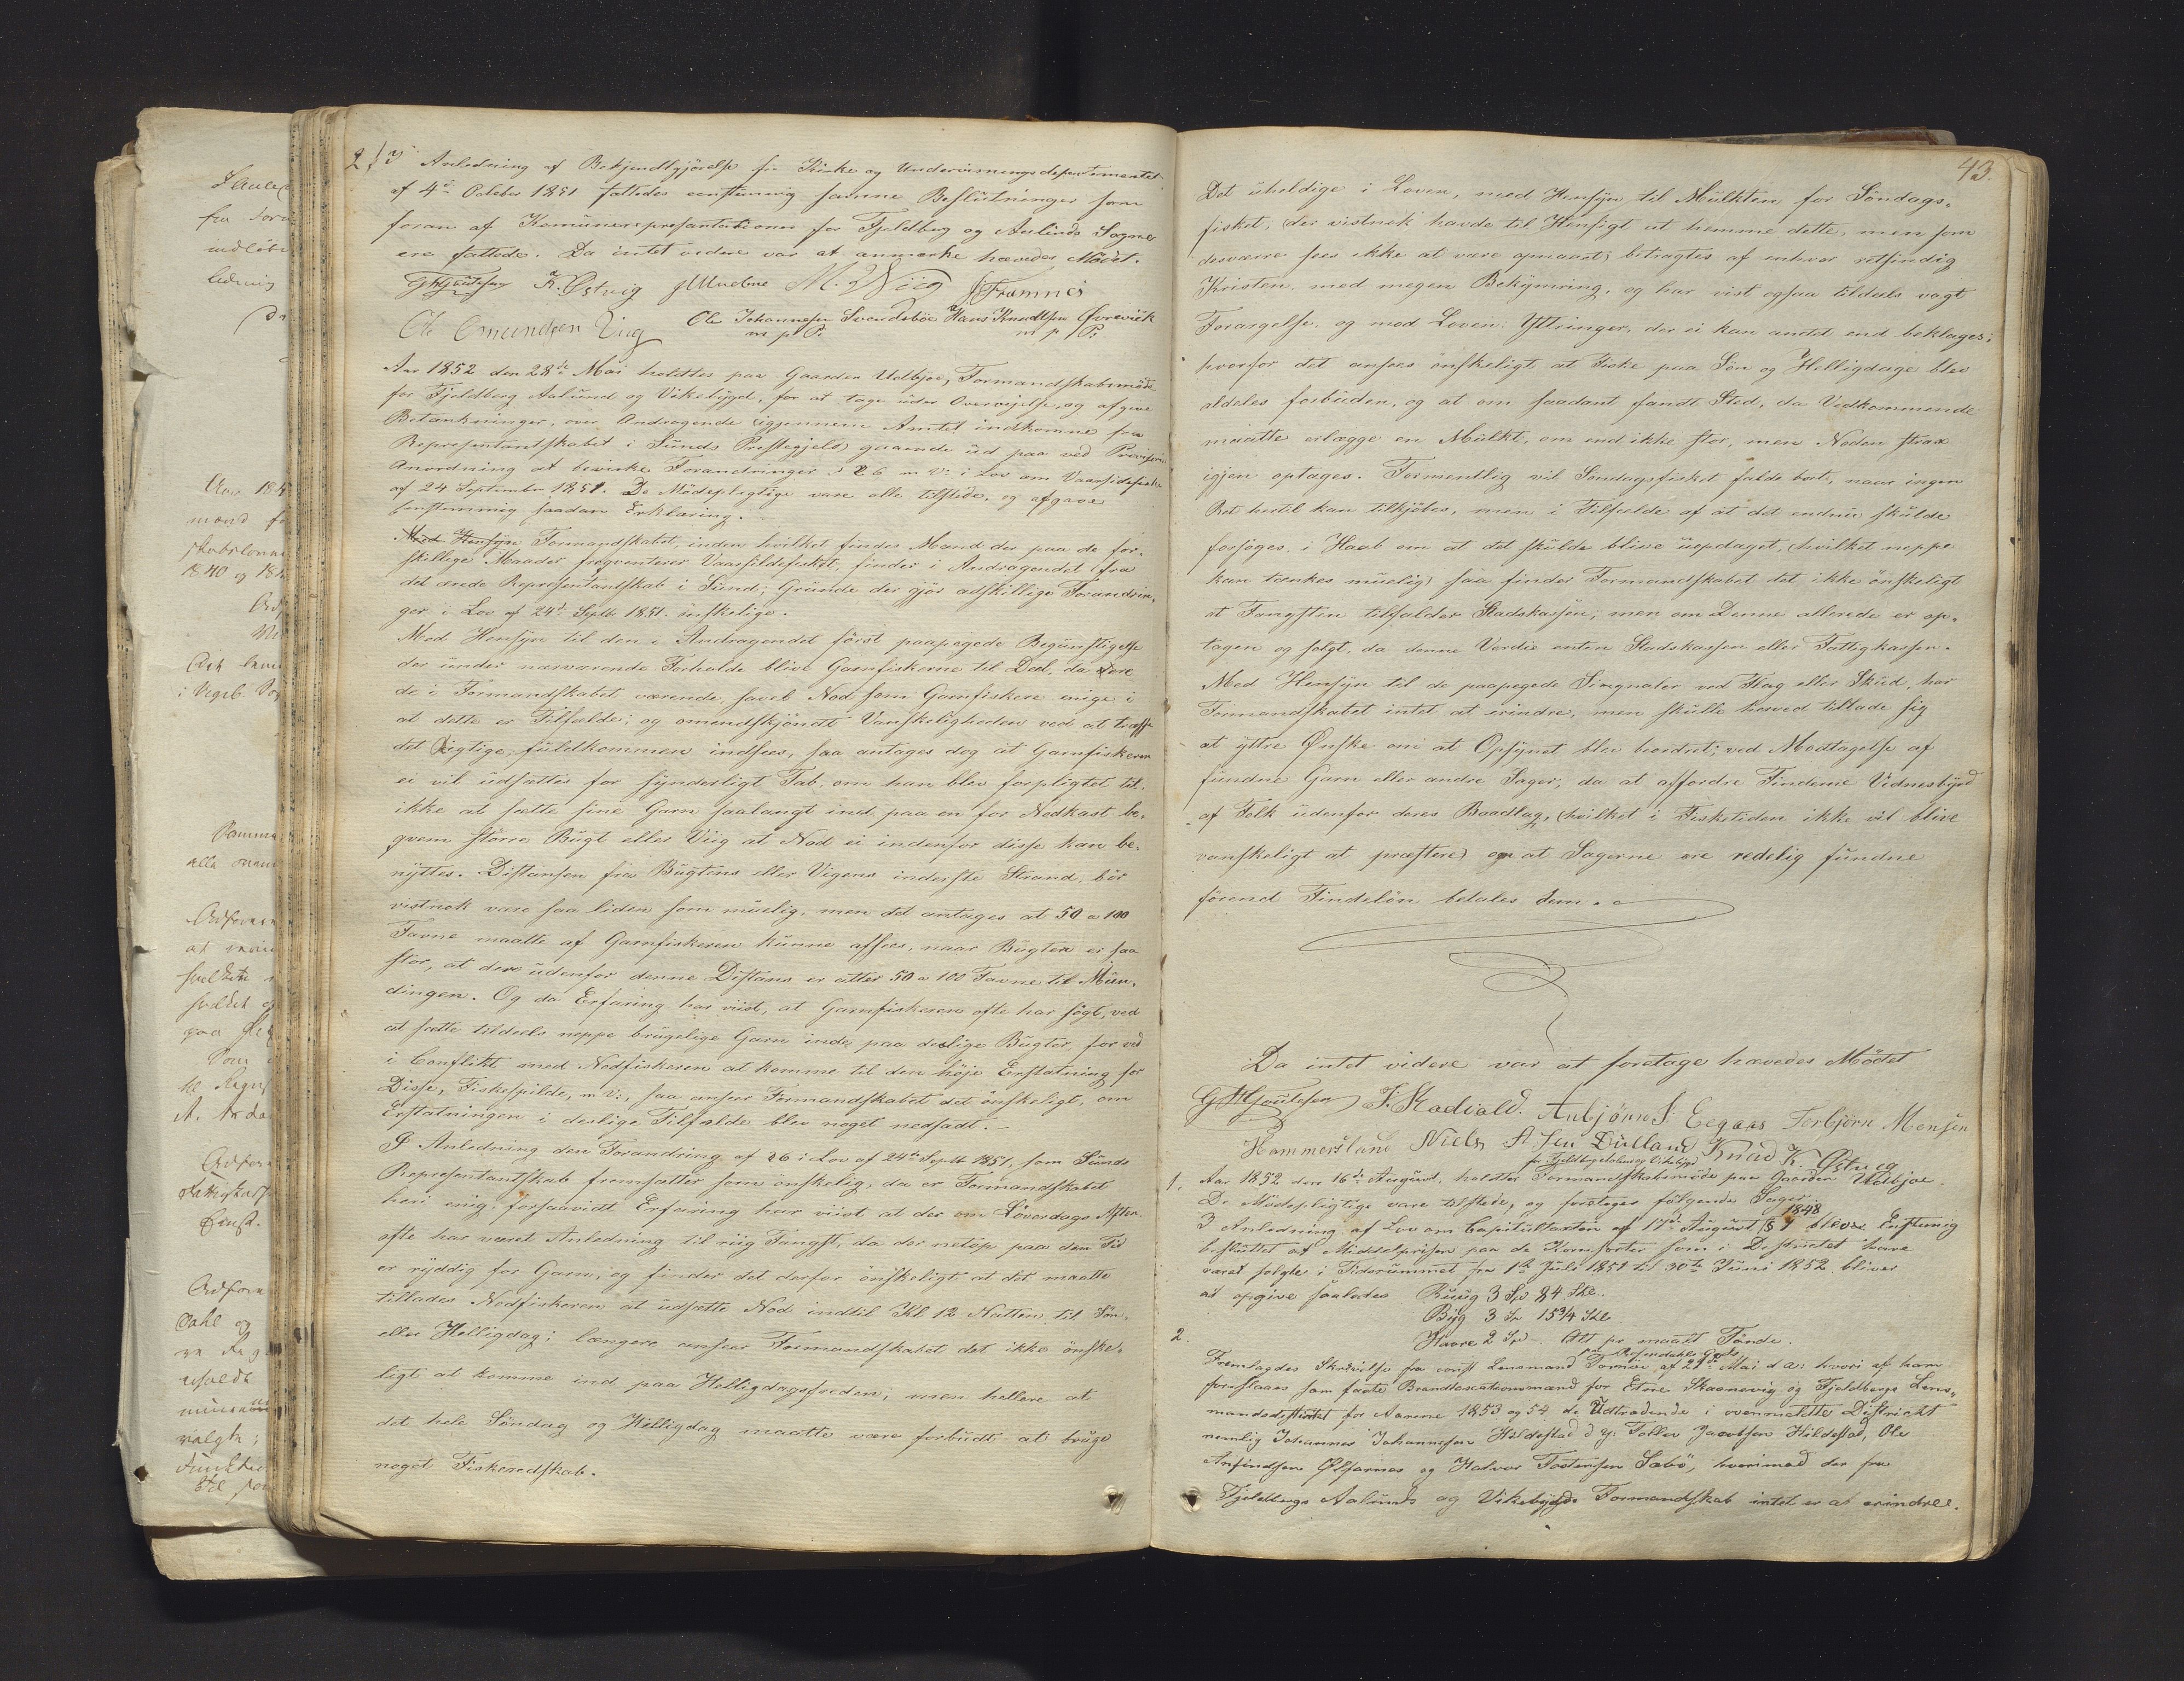 2, I Anledning af Bekjendtgjörelse fr Kirke og Undervisningsdepartementet
af 4de October 1851 fattedes eenstemmig samme Beslutninger som
foran af Komunerepresentationen for Fjeldberg og Aalunds Sogne
ere fattede. Da intet videre var at anmærke hævedes Mödet.
K. Østvig M. Wiig J Framnes
Ole Omundsen Viig Ole Johannesen Svendsböe Hans Knudtsen Øvrevik
m p P. m p P:
Aar 1852 den 28de Mai holdtes paa Gaarden Uelbjoe, Formandskabsmöde
for Fjeldberg Aalund og Vikebygd, for at tage under Overveielse, og afgive
Betænkninger, over Andragende igjennem Amtet indkomne fra
Representantskabet i Sunds Prestegjeld gaaende ud paa ved Provisorisk
Anordning at bevirke Forandringer i § 26 m V: i Lov om Vaarsildefiske
af 24 September 1851. De Mödepligtige vare alle tilstede, og afgave
Eenstemmig saadan Erklæring.
Med Hensyn Formandskabet, inden hvilket findes Mænd der paa de for-
skillige Maader freqventerer Vaarsildefisket, finder i Andragendet fra
det ærede Representantskab i Sund; Grunde der gjör adskillige Forandrin-
ger i Lov af 24de Septb 1851. önskelige.
Med Hensyn til den i Andragendet först paapegede Begunstigelse
der under nærværende Forholde blive Garnfiskerne til Deel, da ere
de i Formandskabet værende, savel Nod som Garnfiskere enige i
at dette er Tilfælde; og omendskjöndt Vanskeligheden ved at træffe
det Rigtige, fuldkommen indsees, saa antages dog at Garnfiskeren
ei vil udsættes for synderligt Tab, om han blev forpligtet til
ikke at sætte sine Garn saalangt ind paa en for Nodkast be-
qvem större Bugt eller Viig at Nod ei indenfor disse kan be-
nyttes. Distansen fra Bugtens eller Vigens inderste Strand, bör
vistnok være saa liden som muelig, men det antages at 50 a 100
Favne maatte af Garnfiskeren kunne afsees, naar Bugten er saa
stor, at der udenfor denne Distans er atter 50 a 100 Favne til Mün-
dingen. Og da Erfaring har viist, at Garnfiskeren ofte har sögt, ved
at sætte tildeels neppe brugelige Garn inde paa deslige Bugter, for ved
i Conflikt med Nodfiskeren at komme til den höje Erstatning for
Disse, Fiskespilde, m V:, saa anseer Formandskabet det önskeligt, om
Erstatningen i deslige Tilfælde blev noget nedsadt.
I Anledning den Forandring af 26 i Lov af 24de Septb 1851, som Sunds
Representantskab fremsætter som önskelig, da er Formandskabet
heri enig, forsaavidt Erfaring har viist at der om Löverdags Aften
ofte har været Anledning til riig Fangst, da der netop paa den Tid
er ryddig for Garn, og finder det derfor önskeligt at det maatte
tillades Nodfiskeren at udsætte Nod indtil Kl 12 Natten til Sön-
eller Helligdag; længere anseer Formandskabet det ikke önske-
ligt at komme ind paa Helligdagsfreden, men hellere at
det hele Söndag og Helligdag maatte være forbudt at bruge
noget Fiskeredskab.
43
Det uheldige i Loven, med Hensyn til Mulkten for Söndags-
fisket, (der vistnok havde til Hensigt at hemme dette, men som
desværre sees ikke at være opnaaet) betragtes af enhver retsindig
Kristen med megen Bekymring, og har vist ogsaa tildeels vagt
Forargelse, og mod Loven: Yttringer, der ei kan andet end beklages;
hvorfor det ansees önskeligt at Fiske paa Sön og Helligdage blev
aldeles forbuden, og at om saadant fandt Sted, da Vedkommende
maatte erlægge en Mulkt, om end ikke stor, men Noden strax
igjen optages. Formentlig vil Söndagsfisket falde bort, naar ingen
Ret hertil kan tilkjöbes, men i Tilfælde af at det endnu skulde
forsöges, i Haab om at det skulde blive uopdaget, (hvilket neppe
kan tænkes muelig) saa finder Formandskabet det ikke önskeligt
at Fangsten tilfalder Stadskassen; men om Denne allerede er op-
tagen og solgt, da denne Værdie enten Stadskassen eller Fattigkassen.
Med Hensyn til de paapegede Singnaler ved Flag eller Skud, har
Formandskabet intet at erindre, men skulle herved tillade sig
at yttre Ønske om at Opsynet blev beordret; ved Modtagelse af
fundne Garn eller andre Sager, da at affordre Finderne Vidnesbyrd
af Folk udenfor deres Baadlag, (hvilket i Fisketiden ikke vil blive
vanskeligt at præstere) om at Sagerne ere redelig fundne
förend Findelön betales dem.
Da intet videre var at foretage hævedes Mödet
J. Skadvald. Anbjörn S: Eegaas Torbjörn Monsen
Hammersland Niels A. Sen Dueland Knud K. Østvig
for Fjeldberg Aalund og Vikebygd
1. Aar 1852 den 16de August, holdtes Formandskabsmöde paa Gaarden Uelbjoe.
De Mödepligtige vare tilstede, og foretoges fölgende Sager.
I Anledning af Lov om Capitultaxten af 17de August 1848 § 7 blever Enstemig
besluttet at Middelprisen paa de Kornsorter som i Destrictet have
været solgte i Tidsrummet fra 1te Juli 1851 til 30te Juni 1852 bliver
at opgive saaledes Ruug 3 Spd 84 Skl.
Byg 3 Sp 15 3/4 Skl
Havre 2 Spd. Alt pr maalt Tönde.
2. Fremlagdes Skrivelse fra const Lensmand Tormöe, af 21de Mai d a: hvori af ham
foreslaaes som faste Brandtaxationsmænd for Etne Skaanevig og Fjeldbergs Lens-
mandsdistrict for Aarene 1853 og 54 de Udtrædende i ovenmeldte District
nemlig Johannes Johannesen Hildestad d y. Tollev Jacobsen Hildestad, Ole
Anfindsen Ølfarnes og Halvor Tostensen Sæbö, hvorimod der fra
Fjeldbergs Aalunds og Vikebygds Formandskab intet er at erindre.